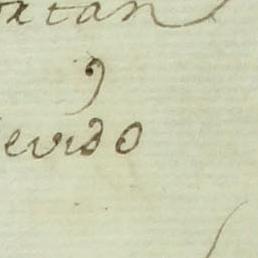 extan
9
evido